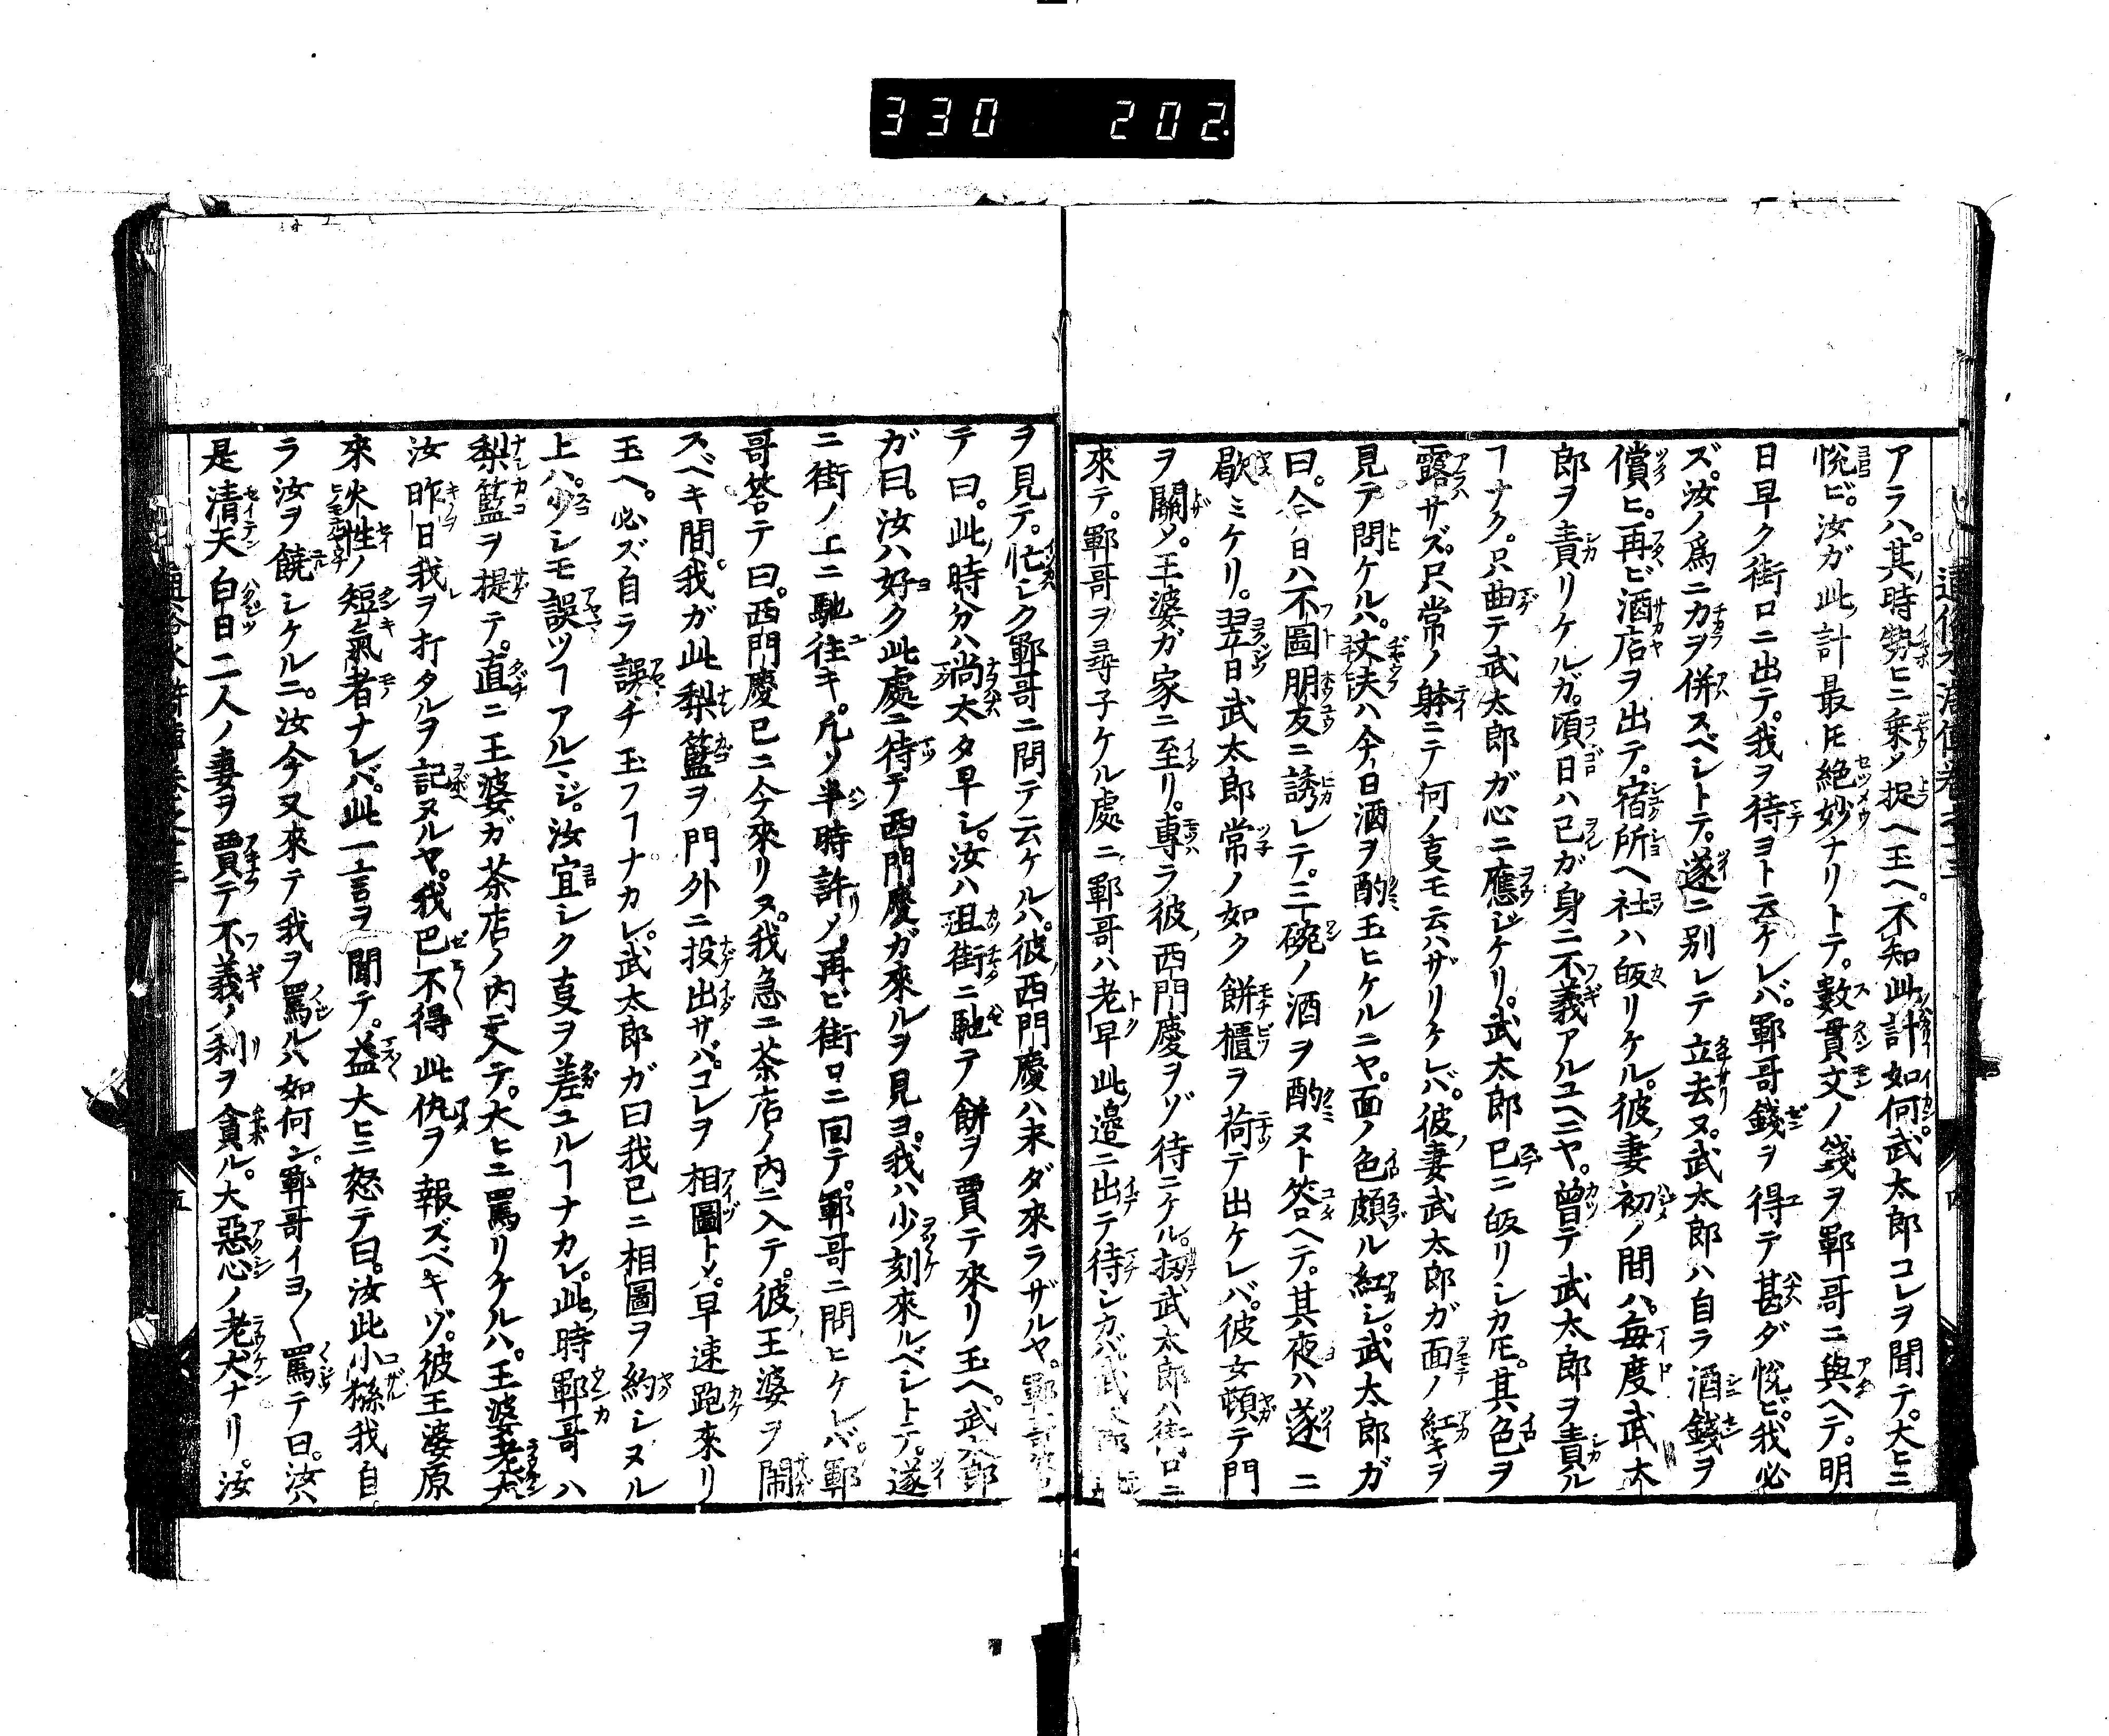 330 202
アラハ。其時勢ヒニ乗メ捉ヘ玉ヘ。不知此計如何。武太郎コレヲ聞テ。大ヒニ
悦ビ。汝ガ此計最モ絶妙ナリトテ。數貫文ノ錢ヲ鄆哥ニ與ヘテ。明
日早ク街口ニ出テ。我ヲ待ヨト云ケレバ。鄆哥錢ヲ得テ甚ダ悦ビ。我必
ズ。汝ノ爲ニカヲ併スベシトテ。遂ニ別レテ立去ヌ。武太郎ハ自ラ酒錢ヲ
償ヒ。再ビ酒店ヲ出テ。宿所ヘ社ハ皈リケル。彼妻初ノ間ハ。毎度武太
郎ヲ責リケルガ。頃日ハ己ガ身ニ不義アルユヘニヤ。曾テ武太郎ヲ責ル
ヿナク。只曲テ武太郎ガ心ニ應ジケリ。武太郎已ニ皈リシカ𪜈。其色ヲ
露サズ。只常ノ躰ニテ何ノ亊モ云ハザリケレバ。彼妻武太郎ガ面ノ紅キヲ
見テ問ケルハ。丈夫ハ今日酒ヲ酌玉ヒケルニヤ。面ノ色頗ル紅シ。武太郎ガ
曰。今日ハ不圖朋友ニ誘レテ。三碗ノ酒ヲ酌ヌト答ヘテ。其夜ハ遂ニ
歇ミケリ。翌日武太郎常ノ如ク餅櫃ヲ荷テ出ケレバ。彼女頓テ門
ヲ關メ。王婆ガ家ニ至リ。專ラ彼西門慶ヲゾ待ニケル。扨武太郎ハ街口ニ
來テ。鄆哥ヲ尋子ケル處ニ鄆哥ハ老早此邉ニ出テ待シカバ武太郎
ヲ見テ。忙シク鄆哥ニ問テ云ケルハ。彼西門慶ハ未ダ來ラザルヤ。鄆哥
テ曰。此時分ハ尚太タ早シ。汝ハ徂街ニ馳テ餅ヲ賣テ來リ玉ヘ。武太郎
ガ曰。汝ハ好ク此處ニ待テ西門慶ガ來ルヲ見ヨ。我ハ少刻來ルベシトテ。遂
ニ街ノ上ニ馳往キ。凡ソ半時許リノ再ビ街口ニ回テ。鄆哥ニ問ヒケレバ。鄆
哥答テ曰。西門慶已ニ今來リヌ。我急ニ茶店ノ内ニ入テ。彼王婆ヲ閙
スベキ間。我ガ此梨籃ヲ門外ニ投出サバ。コレヲ相圖トメ。早速跑來リ
玉ヘ。必ズ自ラ誤チ玉フヿナカレ。武太郎ガ曰我已ニ相圖ヲ約シヌル
上ハ。少シモ誤ツヿアルマジ。汝宜シク亊ヲ差ユルヿナカレ。此時鄆哥ハ
梨籃ヲ提テ。直ニ王婆ガ茶店ノ内ニ入テ。大ヒニ罵リケルハ。王婆老犬
汝昨日我ヲ打タルヲ記ヌルヤ。我巴不得此仇ヲ報ズベキゾ。彼王婆原
來火性ノ短氣者ナレバ。此一言ヲ聞テ。益大ヒニ怒テ曰。汝此小猻我自
ラ汝ヲ饒シケルニ。汝今又來テ我ヲ罵ルハ如何ン。鄆哥イヨ〱罵テ曰。汝ハ
是清天白日二人ノ妻ヲ賣テ不義ノ利ヲ貪ル。大惡心ノ老犬ナリ。汝